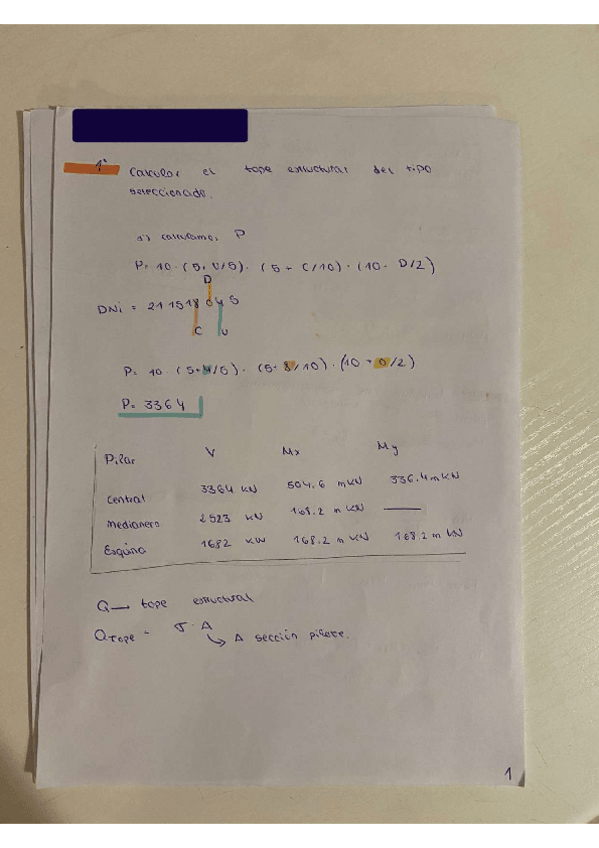 1º Calcular el tope estructural del tipo
seleccionado.
a) calculamos P
P= 10 · (5+ U/5) · (5 + C/10) · (10 - D/2)
D
DNi = 21151804S
C U
P= 10 · (5+4/5) · (5+8/10) · (10 - 0/2)
P= 3364
Pilar V Mx My
central 3364 kN 504.6 mkN 336.4 mkN
medianero 2523 kN 168.2 m kN —
Esquina 1682 kN 168.2 m kN 168.2 m kN
Q → tope estructural
Qtope = σ · A
↳ A sección pilote.
1